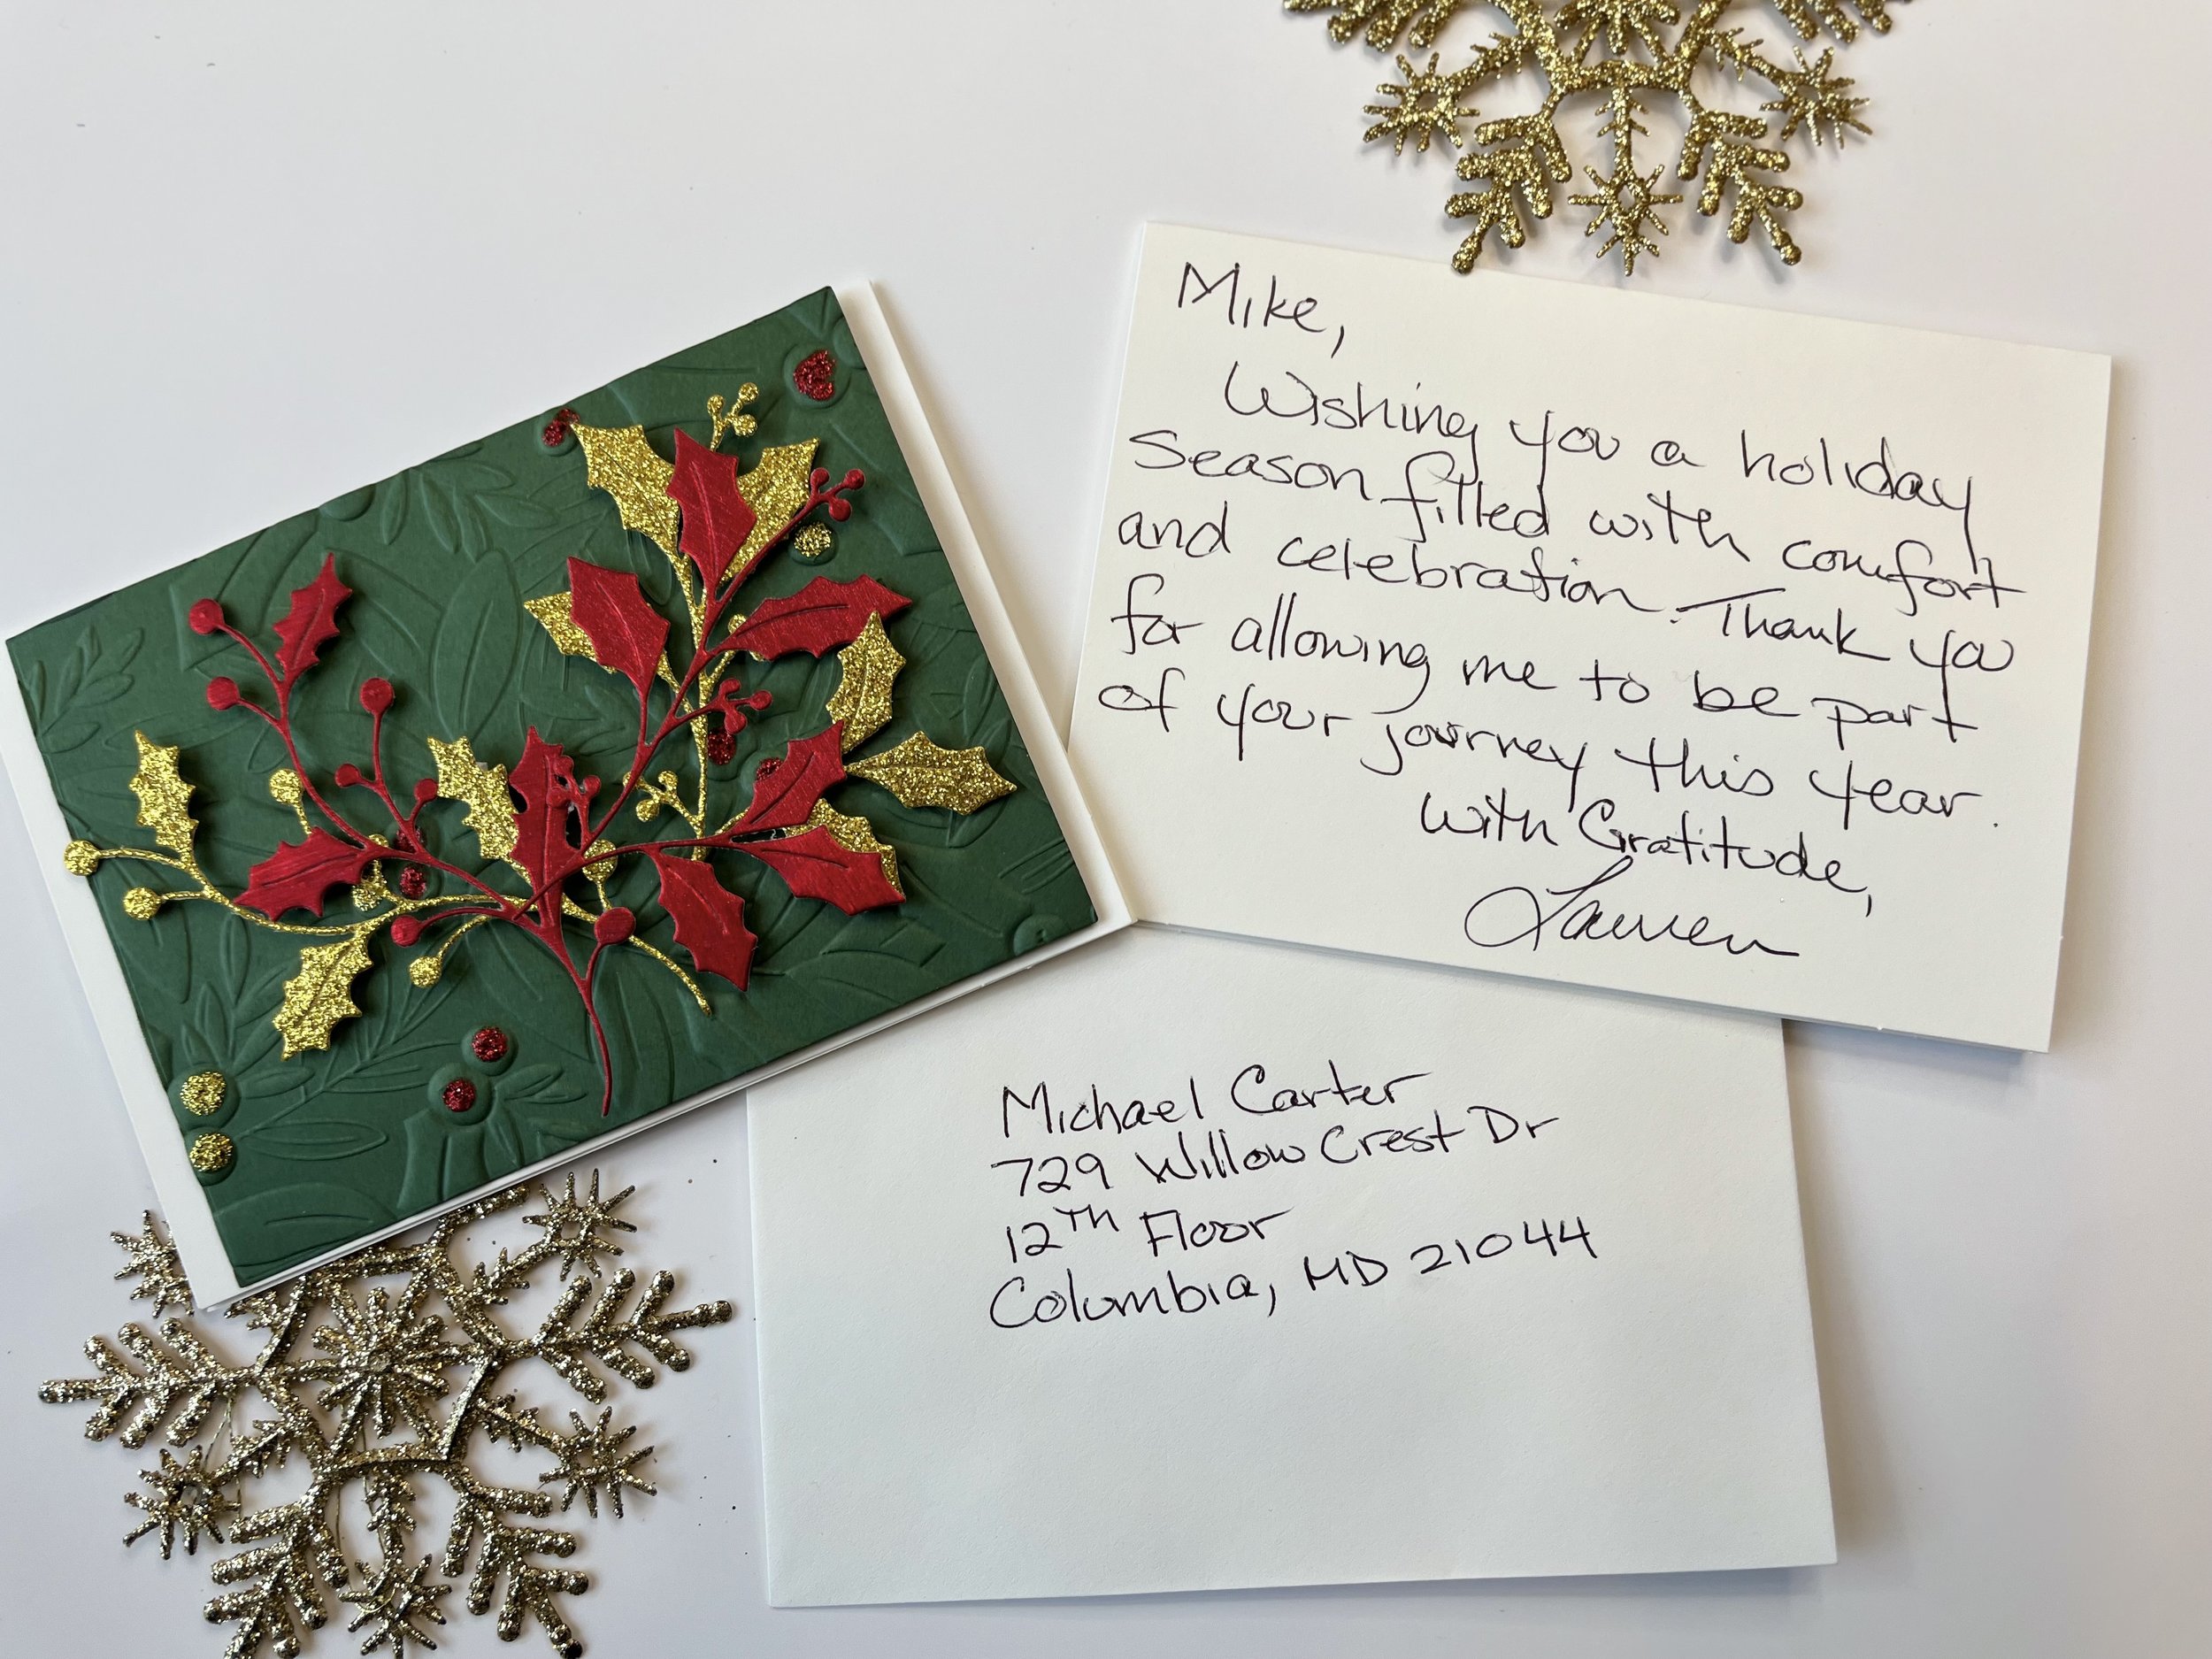 Mike,
Wishing you a holiday
Season filled with comfort
and celebration. Thank you
for allowing me to be part
of your journey this year.
With Gratitude,
Lauren
Michael Carter
729 Willow Crest Dr
12TH Floor
Columbia, MD 21044